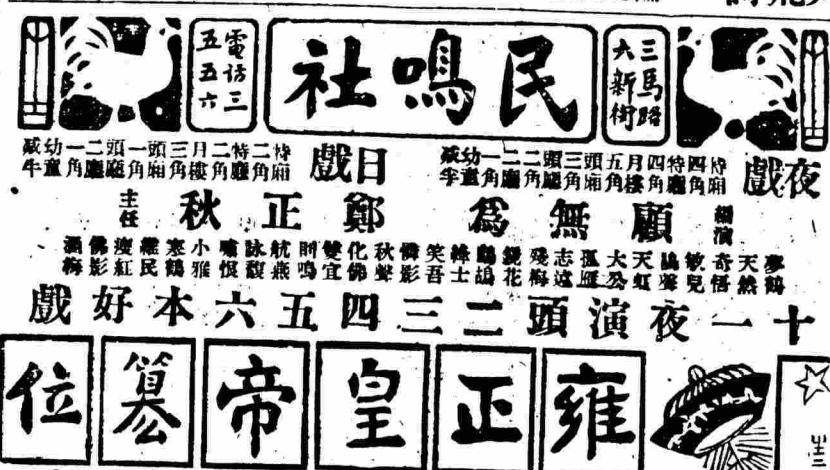 三馬路
大新街
民鳴社
電話三
五五六
夜戲
特廂四角
特廳四角
月樓五角
頭廂三角
頭廳二角
二廳一角
幼童減半
日戲
特廂二角
特廳二角
月樓三角
頭廂一角
頭廳二角
二廳一角
幼童減半
編演
顧無為
鄭正秋
主任
夢鶴
天然
奇悟
敏兒
天虹
大公
孤雁
志遠
殘梅
鏡花
鷓鴣
絳士
笑吾
憐影
秋聲
化佛
雙宜
詠馥
嘯恨
小雅
寒鶴
瘦紅
佛影
十一夜演頭二三四五六本好戲
雍正皇帝篡位